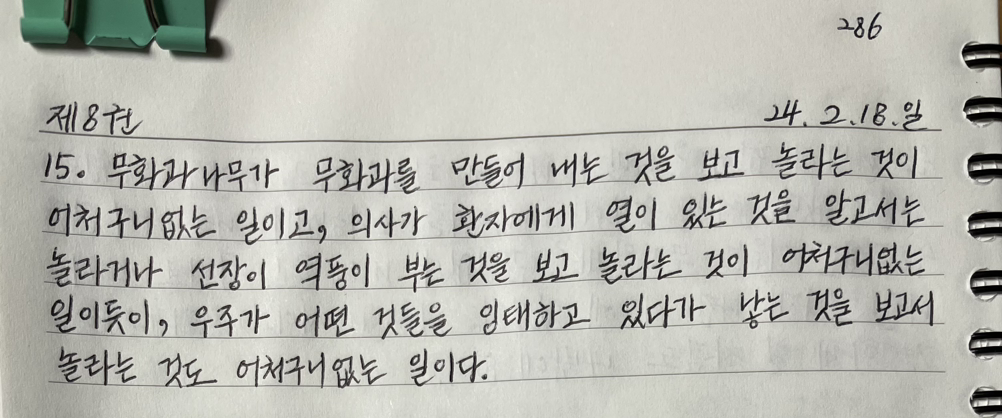 286
제8권 24. 2. 18. 일
15. 무화과나무가 무화과를 만들어 내는 것을 보고 놀라는 것이
어처구니없는 일이고, 의사가 환자에게 열이 있는 것을 알고서는
놀라거나 선장이 역풍이 부는 것을 보고 놀라는 것이 어처구니없는
일이듯이, 우주가 어떤 것들을 잉태하고 있다가 낳는 것을 보고서
놀라는 것도 어처구니없는 일이다.